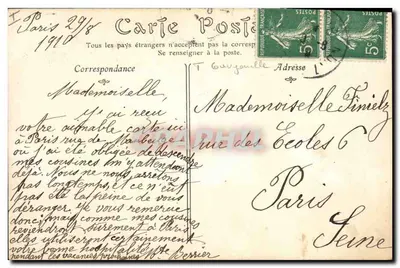 Paris 29/8
1910
Carte Postale
Tous les pays étrangers n'acceptent pas la corresp
Se renseigner à la poste.
5c
5c
Correspondance
Adresse
Mademoiselle,
J'ai reçu
votre aimable carte
à Paris rue de
où j'ai été obligée de descendre
mes cousines m'y attendant
déjà. Nous ne nous arrêtons
pas longtemps, et ce n'est
pas la peine de vous
déranger. Je vous remercie
donc, mais comme mes cousines
reviendront sûrement à Paris
elles utiliseront certainement
votre bonne
pendant les vacances
Mademoiselle
rue des Ecoles 6
Paris
Seine